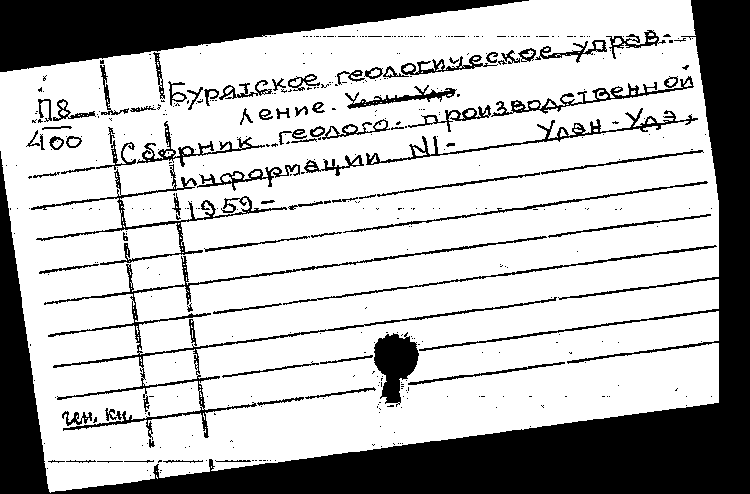 П8
400
Бурятское геологическое управ-
ление. Улан-Удэ.
Сборник геолого-производственной
информации N1- Улан-Удэ,
1959.-
ген. кн.